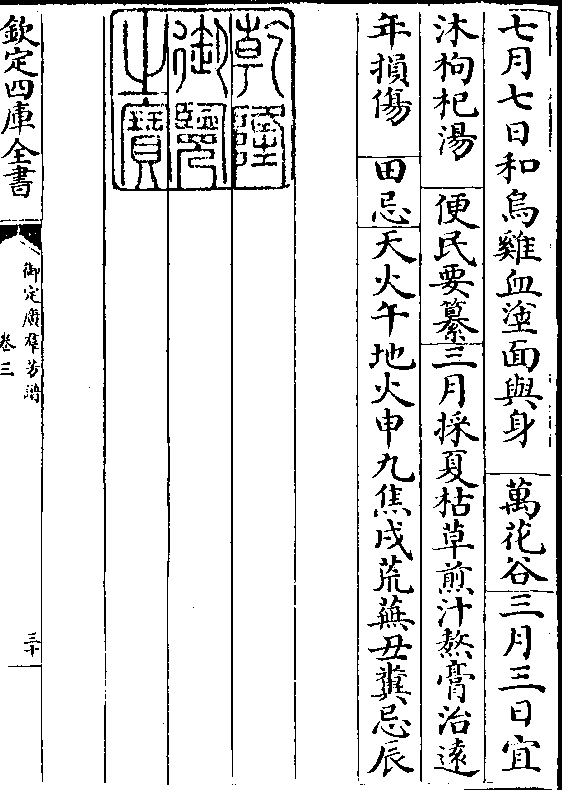 七月七日和烏雞血塗面與身 萬花谷三月三日宜
沐枸杞湯 便民要纂三月採夏枯草煎汁熬膏治遠
年損傷 田忌天火午地火申九焦戌荒蕪丑糞忌辰
乾隆御覽之寶
欽定四庫全書
御定廣群芳譜
卷三
三十